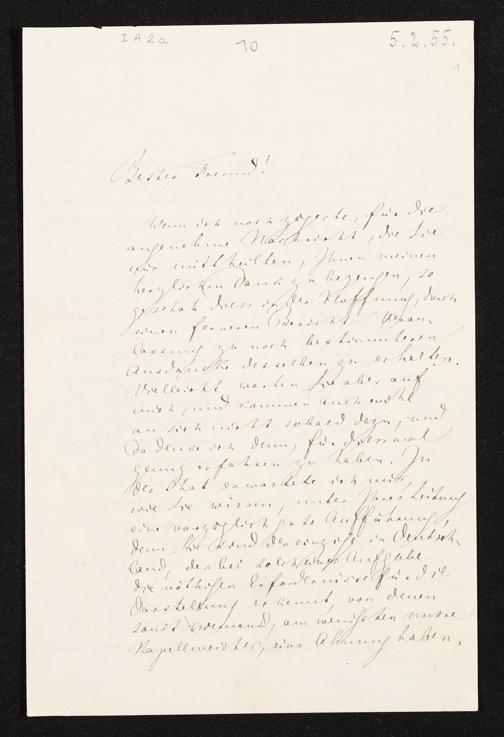 I A 2 a
10
5.2.55.
1.
Bester Freund!
Wenn ich noch zögerte, für die
angenehme Nachricht, die Sie
mir mittheilten, Ihnen meinen
herzlichen Dank zu bezeugen, so
geschah diess in der Hoffnung, durch
einen ferneren Bericht Veran-
lassung zu noch bestimmterem
Ausdrucke desselben zu erhalten.
Vielleicht warten Sie aber auf
mich, und kommen auch wohl
an sich nicht sobald dazu, und
da denke ich denn, für diessmal
genug erfahren zu haben. In
der That erwartete ich mir,
wie Sie wissen, unter Ihrer Leitung
eine vorzüglich gute Aufführung,
denn Sie sind der einzige in Deutsch-
land, der bei solch einer Aufgabe
die nöthigen Erfordernisse für die
Darstellung erkennt, von denen
sonst niemand, am wenigsten unsre
Kapellmeister, eine Ahnung haben.